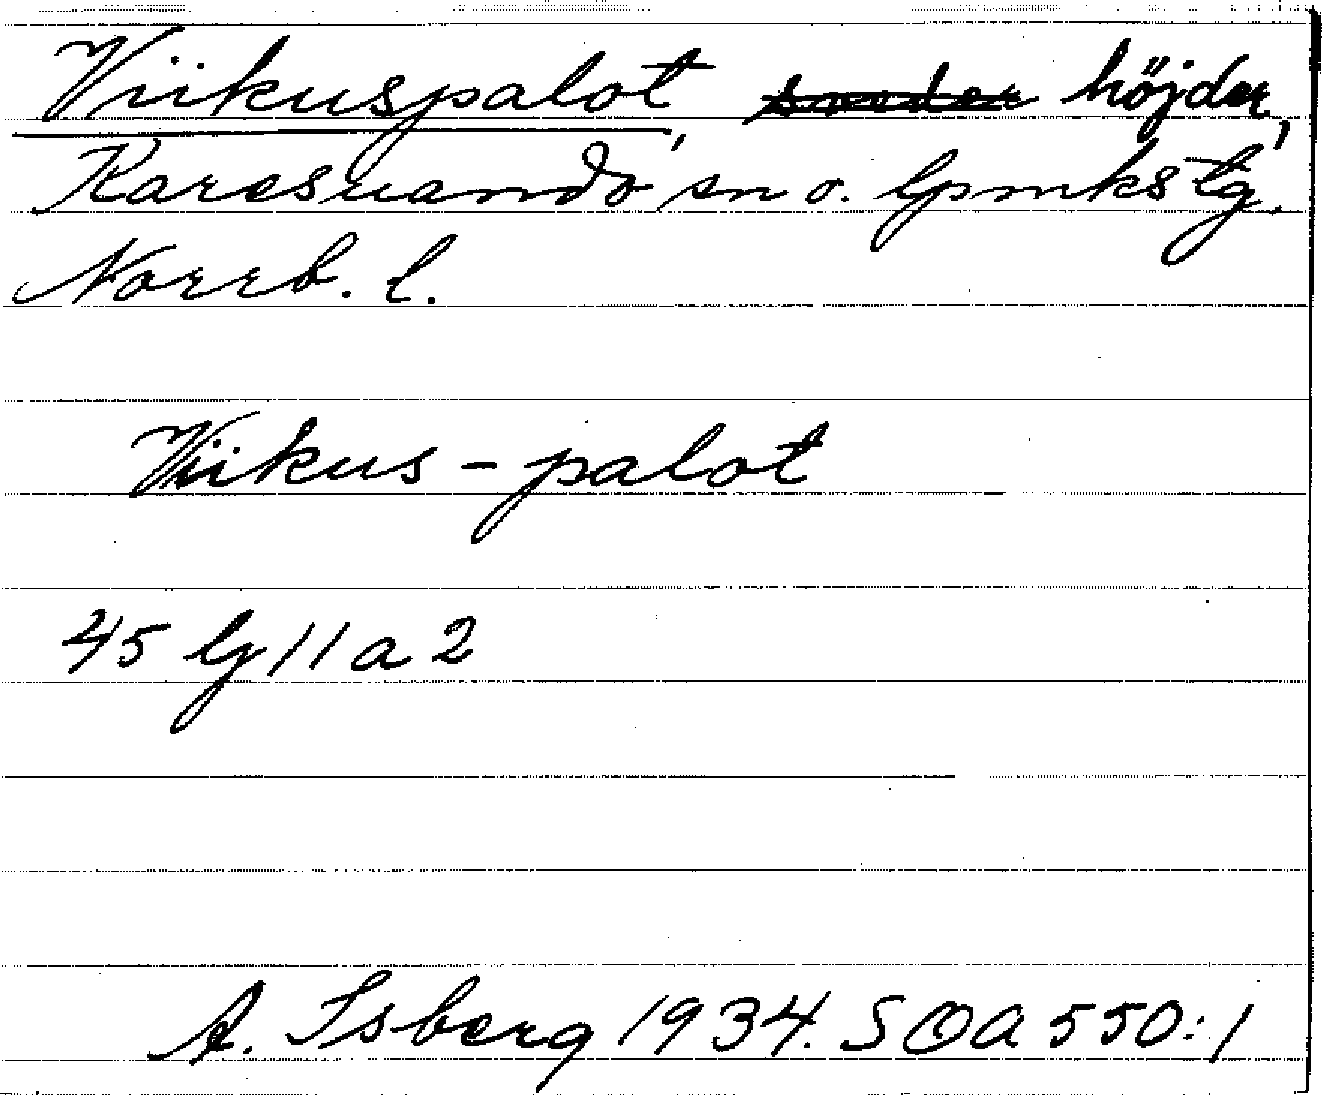 Viikuspalot, höjder,
Karesuando sn o. lpmks tg.
Norrb. l.
Viikus - palot
45 lj 11 a 2
A. Isberg 1934. SOA 550:1